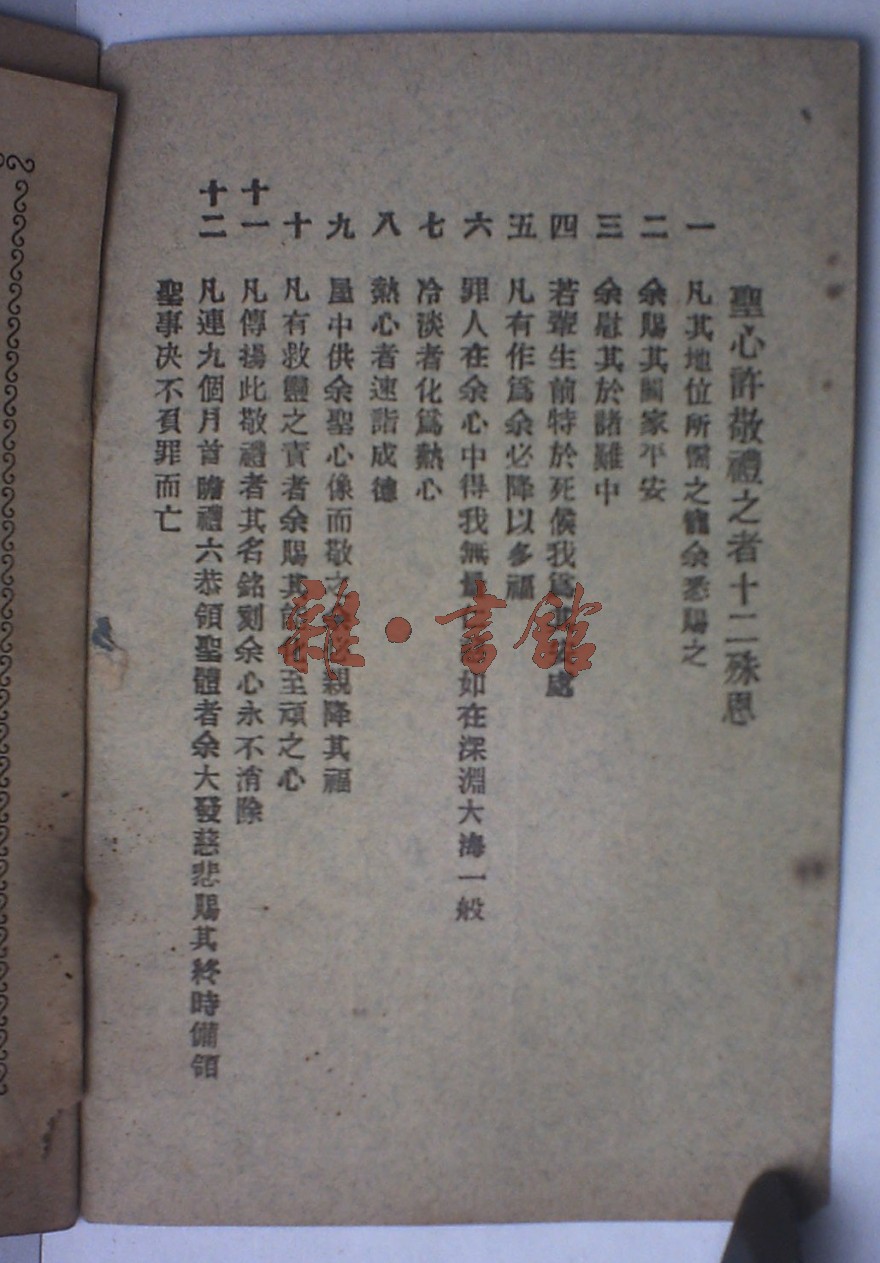 聖心許敬禮之者十二殊恩
一 凡其地位所需之寵余悉賜之
二 余賜其闔家平安
三 余慰其於諸難中
四 若輩生前特於死候我為其處
五 凡有作爲余必降以多福
六 罪人在余心中得我無量如在深淵大海一般
七 冷淡者化爲熱心
八 熱心者速詣成德
九 屋中供余聖心像而敬之親降其福
十 凡有救靈之責者余賜其至頑之心
十一 凡傳揚此敬禮者其名銘刻余心永不消除
十二 凡連九個月首瞻禮六恭領聖體者余大發慈悲賜其終時備領
聖事决不負罪而亡
雜·書館